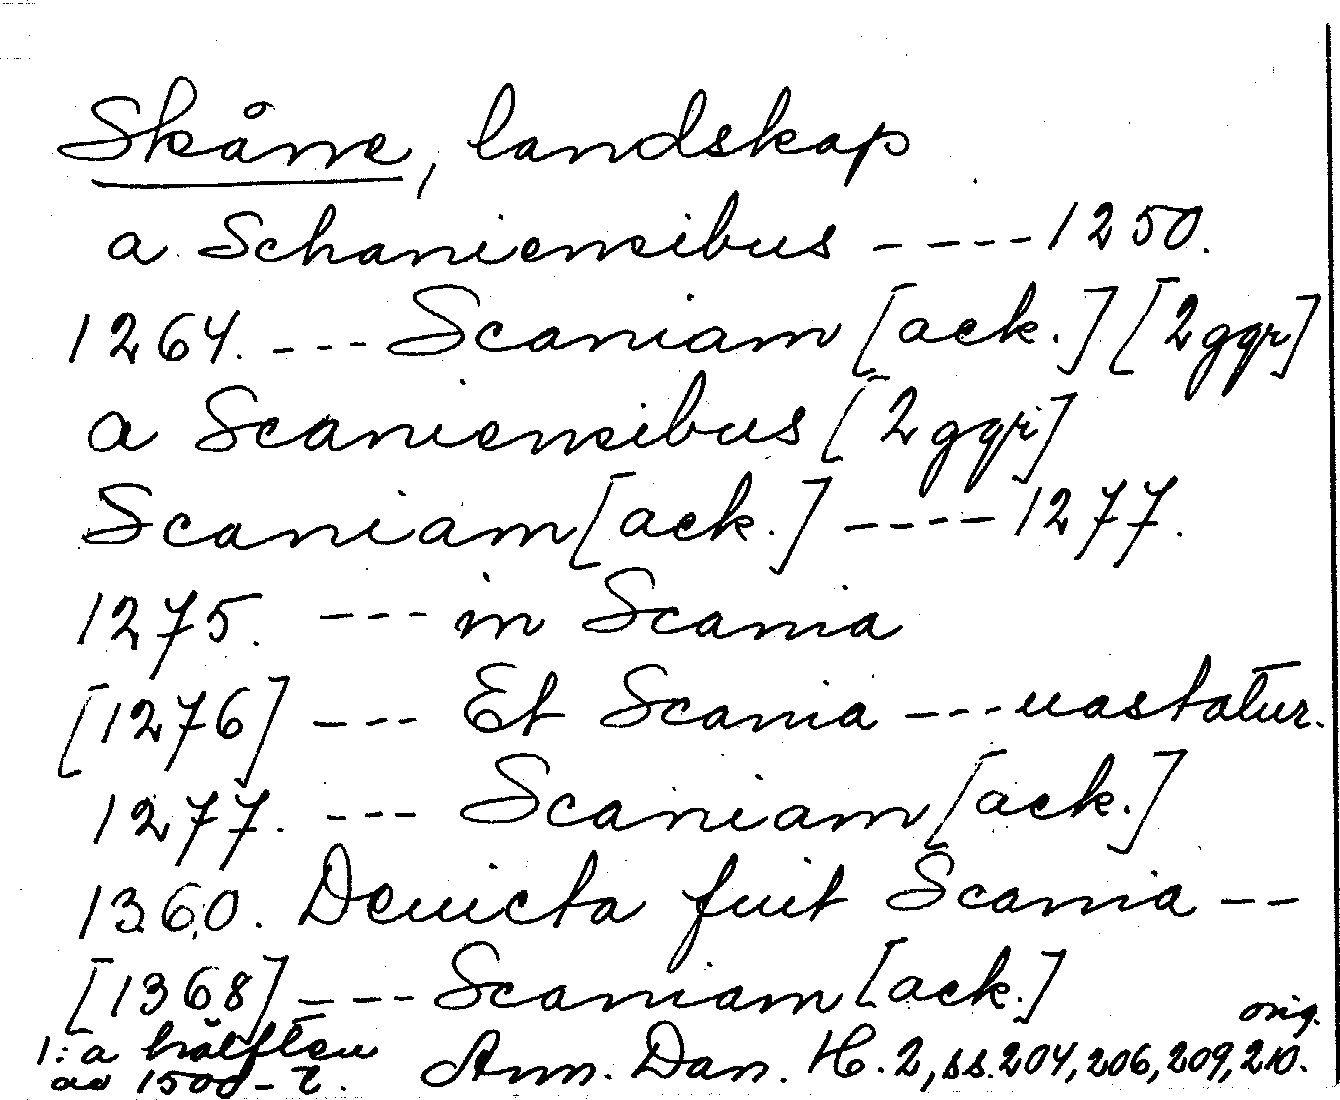 Skåne, landskap
a Schaniensibus ---- 1250.
1264. --- Scaniam [ack.] [2 ggr]
a Scaniensibus [2 ggr]
Scaniam [ack.] ---- 1277.
1275. --- in Scania
[1276] --- Et Scania --- uastatur.
1277. --- Scaniam [ack.]
1360. Deuicta fuit Scania --
[1368] --- Scaniam [ack.]
orig.
1:a hälften Ann. Dan. H. 2, ss. 204, 206, 209, 210.
av 1500-t.